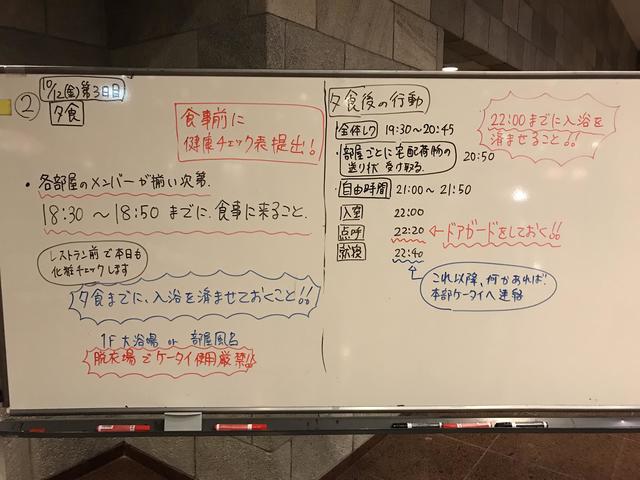 10/12(金)第3日目
②
夕食
食事前に
健康チェック表提出!
・各部屋のメンバーが揃い次第、
18:30 〜 18:50 までに、食事に来ること。
レストラン前で本日も
化粧チェックします
夕食までに、入浴を済ませておくこと!!
1F 大浴場 or 部屋風呂
脱衣場でケータイ使用厳禁!!
夕食後の行動
22:00 までに入浴を
済ませること!!
・全体レク 19:30〜20:45
・部屋ごとに宅配荷物の
送り状 受け取る 20:50
・自由時間 21:00〜 21:50
入室 22:00
点呼 22:20 ← ドアガードをしておく!!
就寝 22:40
これ以降、何かあれば
本部ケータイへ連絡